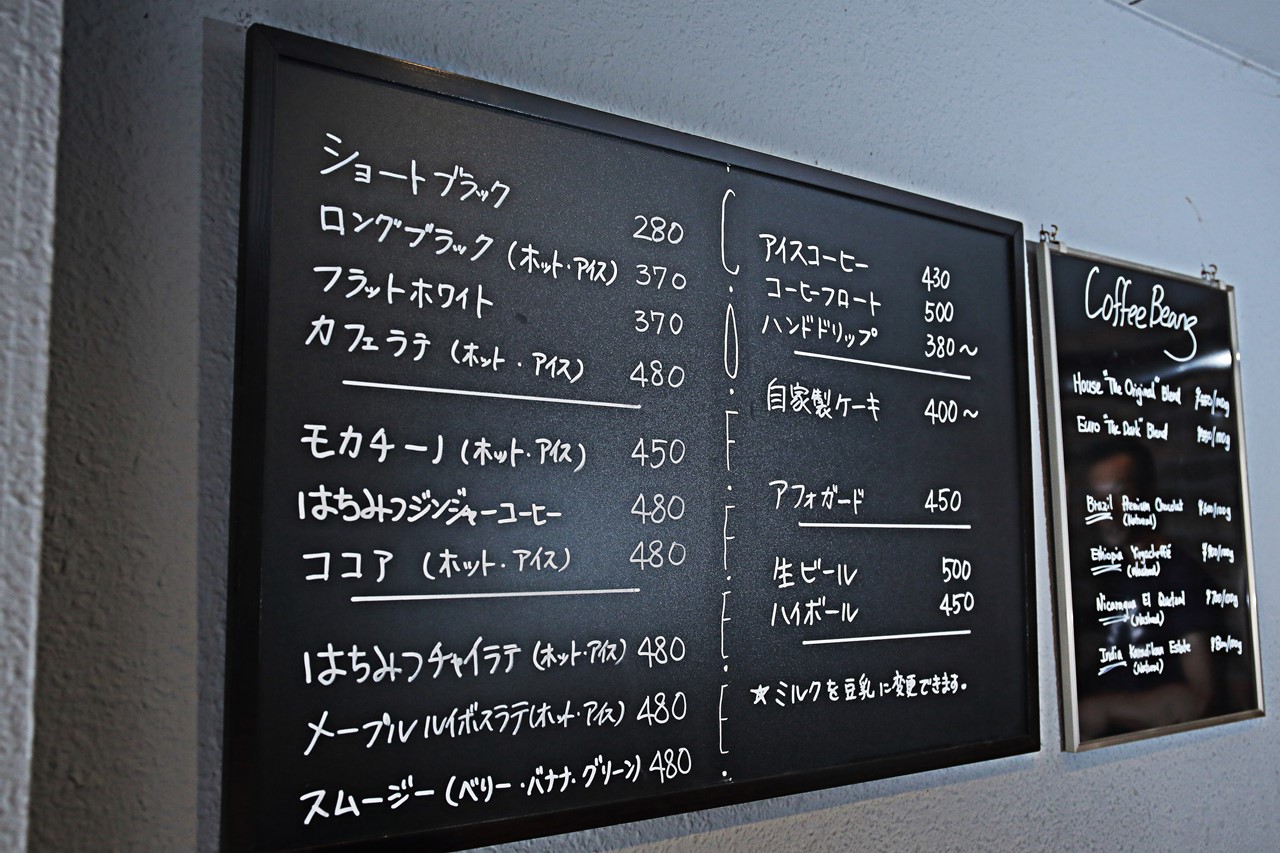 ショートブラック 280
ロングブラック (ホット・アイス) 370
フラットホワイト 370
カフェラテ (ホット・アイス) 480
モカチーノ (ホット・アイス) 450
はちみつジンジャーコーヒー 480
ココア (ホット・アイス) 480
はちみつチャイラテ (ホット・アイス) 480
メープルルイボスラテ(ホット・アイス) 480
スムージー (ベリー・バナナ・グリーン) 480
C.O.F.F.E.E.
アイスコーヒー 430
コーヒーフロート 500
ハンドドリップ 380〜
自家製ケーキ 400〜
アフォガード 450
生ビール 500
ハイボール 450
☆ミルクを豆乳に変更できます。
Coffee Beans
House "The Original" Blend
Euro "The Dark" Blend
Brazil Premium Chocolat
(Natural)
Ethiopia Yirgacheffe
(Washed)
Nicaragua El Quetzal
(Washed)
India Estate
(Natural)